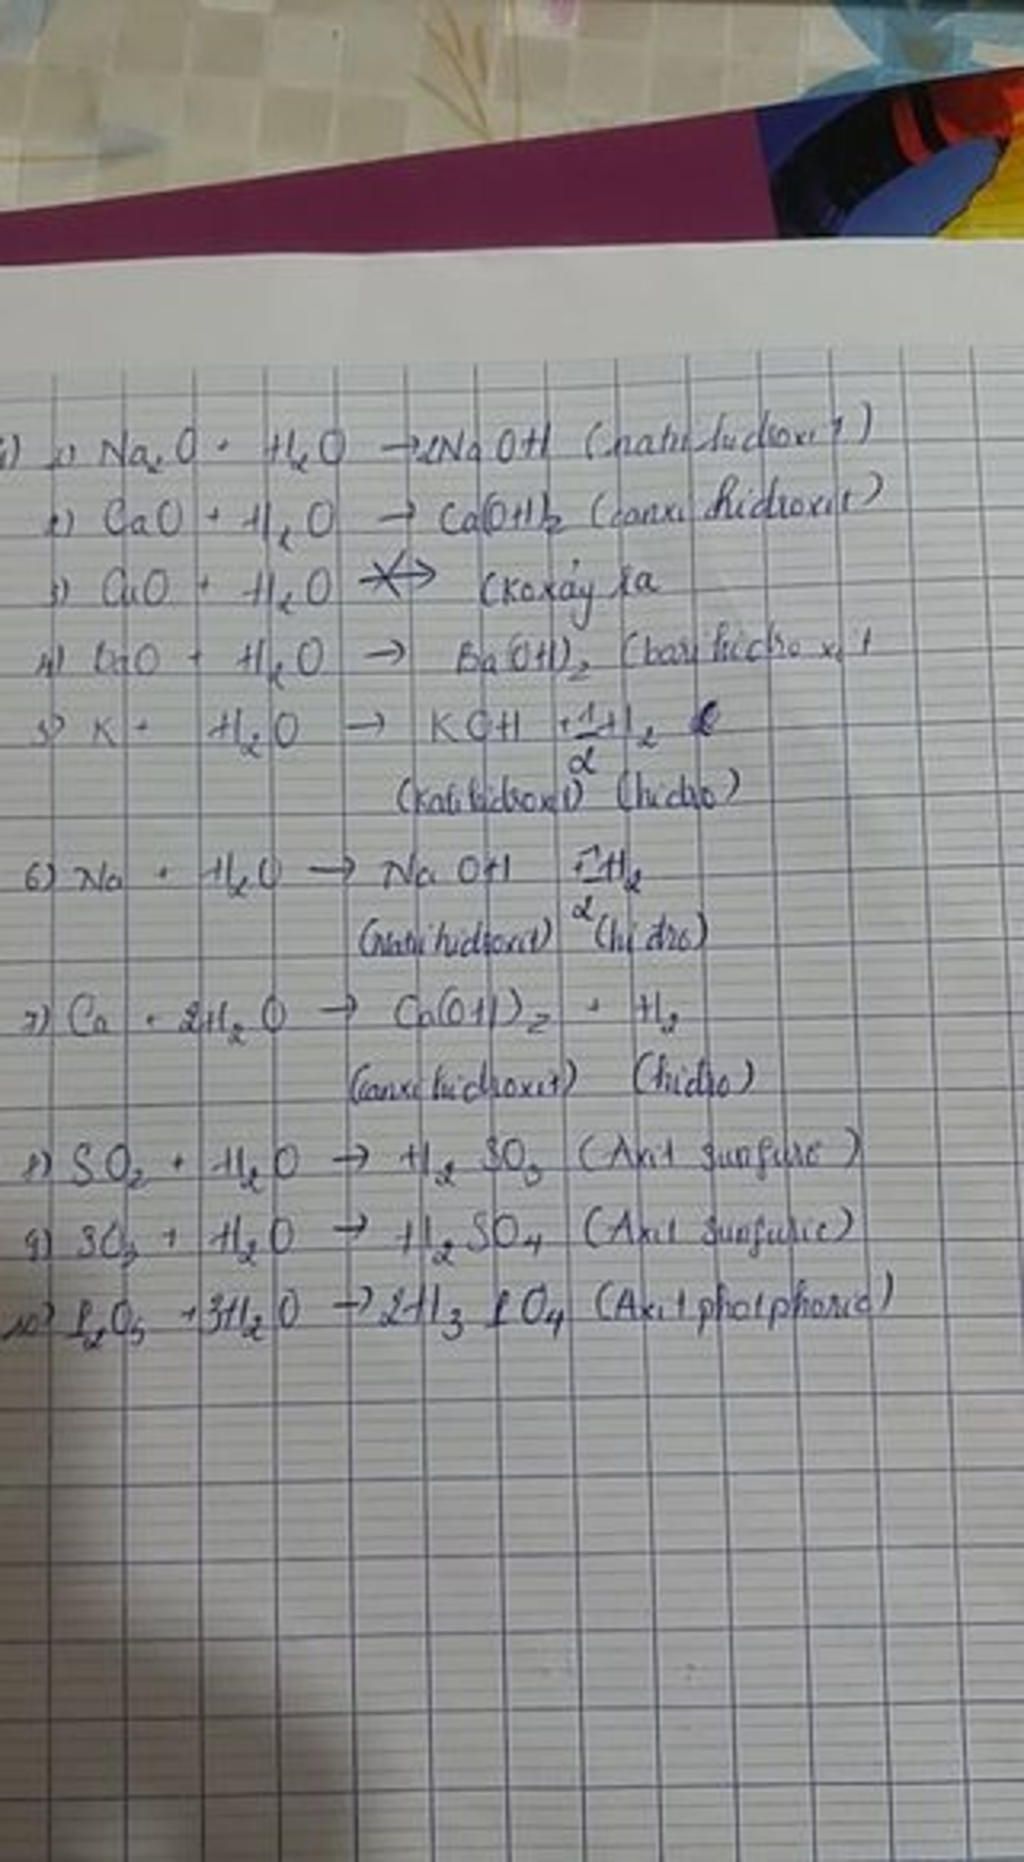 1) Na₂O + H₂O → 2NaOH (natri hidroxit)
2) CaO + H₂O → Ca(OH)₂ (canxi hidroxit)
3) CuO + H₂O (K xảy ra
4) BaO + H₂O → Ba(OH)₂ (bari hidroxit
5) K + H₂O → KOH + 1/2 H₂
(Kali hidroxit) (hidro)
6) Na + H₂O → NaOH + 1/2 H₂
(natri hidroxit) (hidro)
7) Ca + 2H₂O → Ca(OH)₂ + H₂
(canxi hidroxit) (hidro)
8) SO₂ + H₂O → H₂SO₃ (Axit sunfurơ)
9) SO₃ + H₂O → H₂SO₄ (Axit sunfuric)
10) P₂O₅ + 3H₂O → 2H₃PO₄ (Axit photphoric)